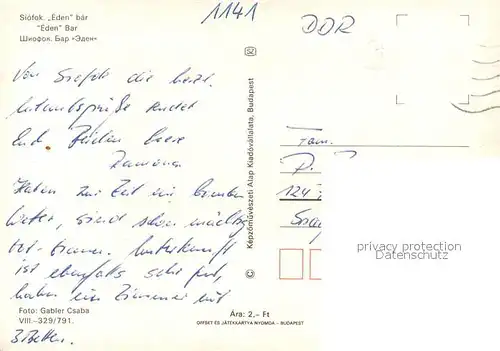 Siófok. „Éden" bár
"Éden" Bar
Шиофок. Бар «Эден»
1141
DDR
Von Siofok die herzl.
Urlaubsgrüße sendet
Euch
Ramona
Haben zur Zeit ein
Wetter, sind schon mächtig
Unterkunft
ist ebenfalls sehr gut,
haben ein Zimmer mit
3 Betten.
Foto: Gabler Csaba
VIII.–329/791.
Képzőművészeti Alap Kiadóvállalata, Budapest
©
Ára: 2,– Ft
OFFSET ÉS JÁTÉKKÁRTYA NYOMDA – BUDAPEST
Fam.
P.
124
privacy protection
Datenschutz